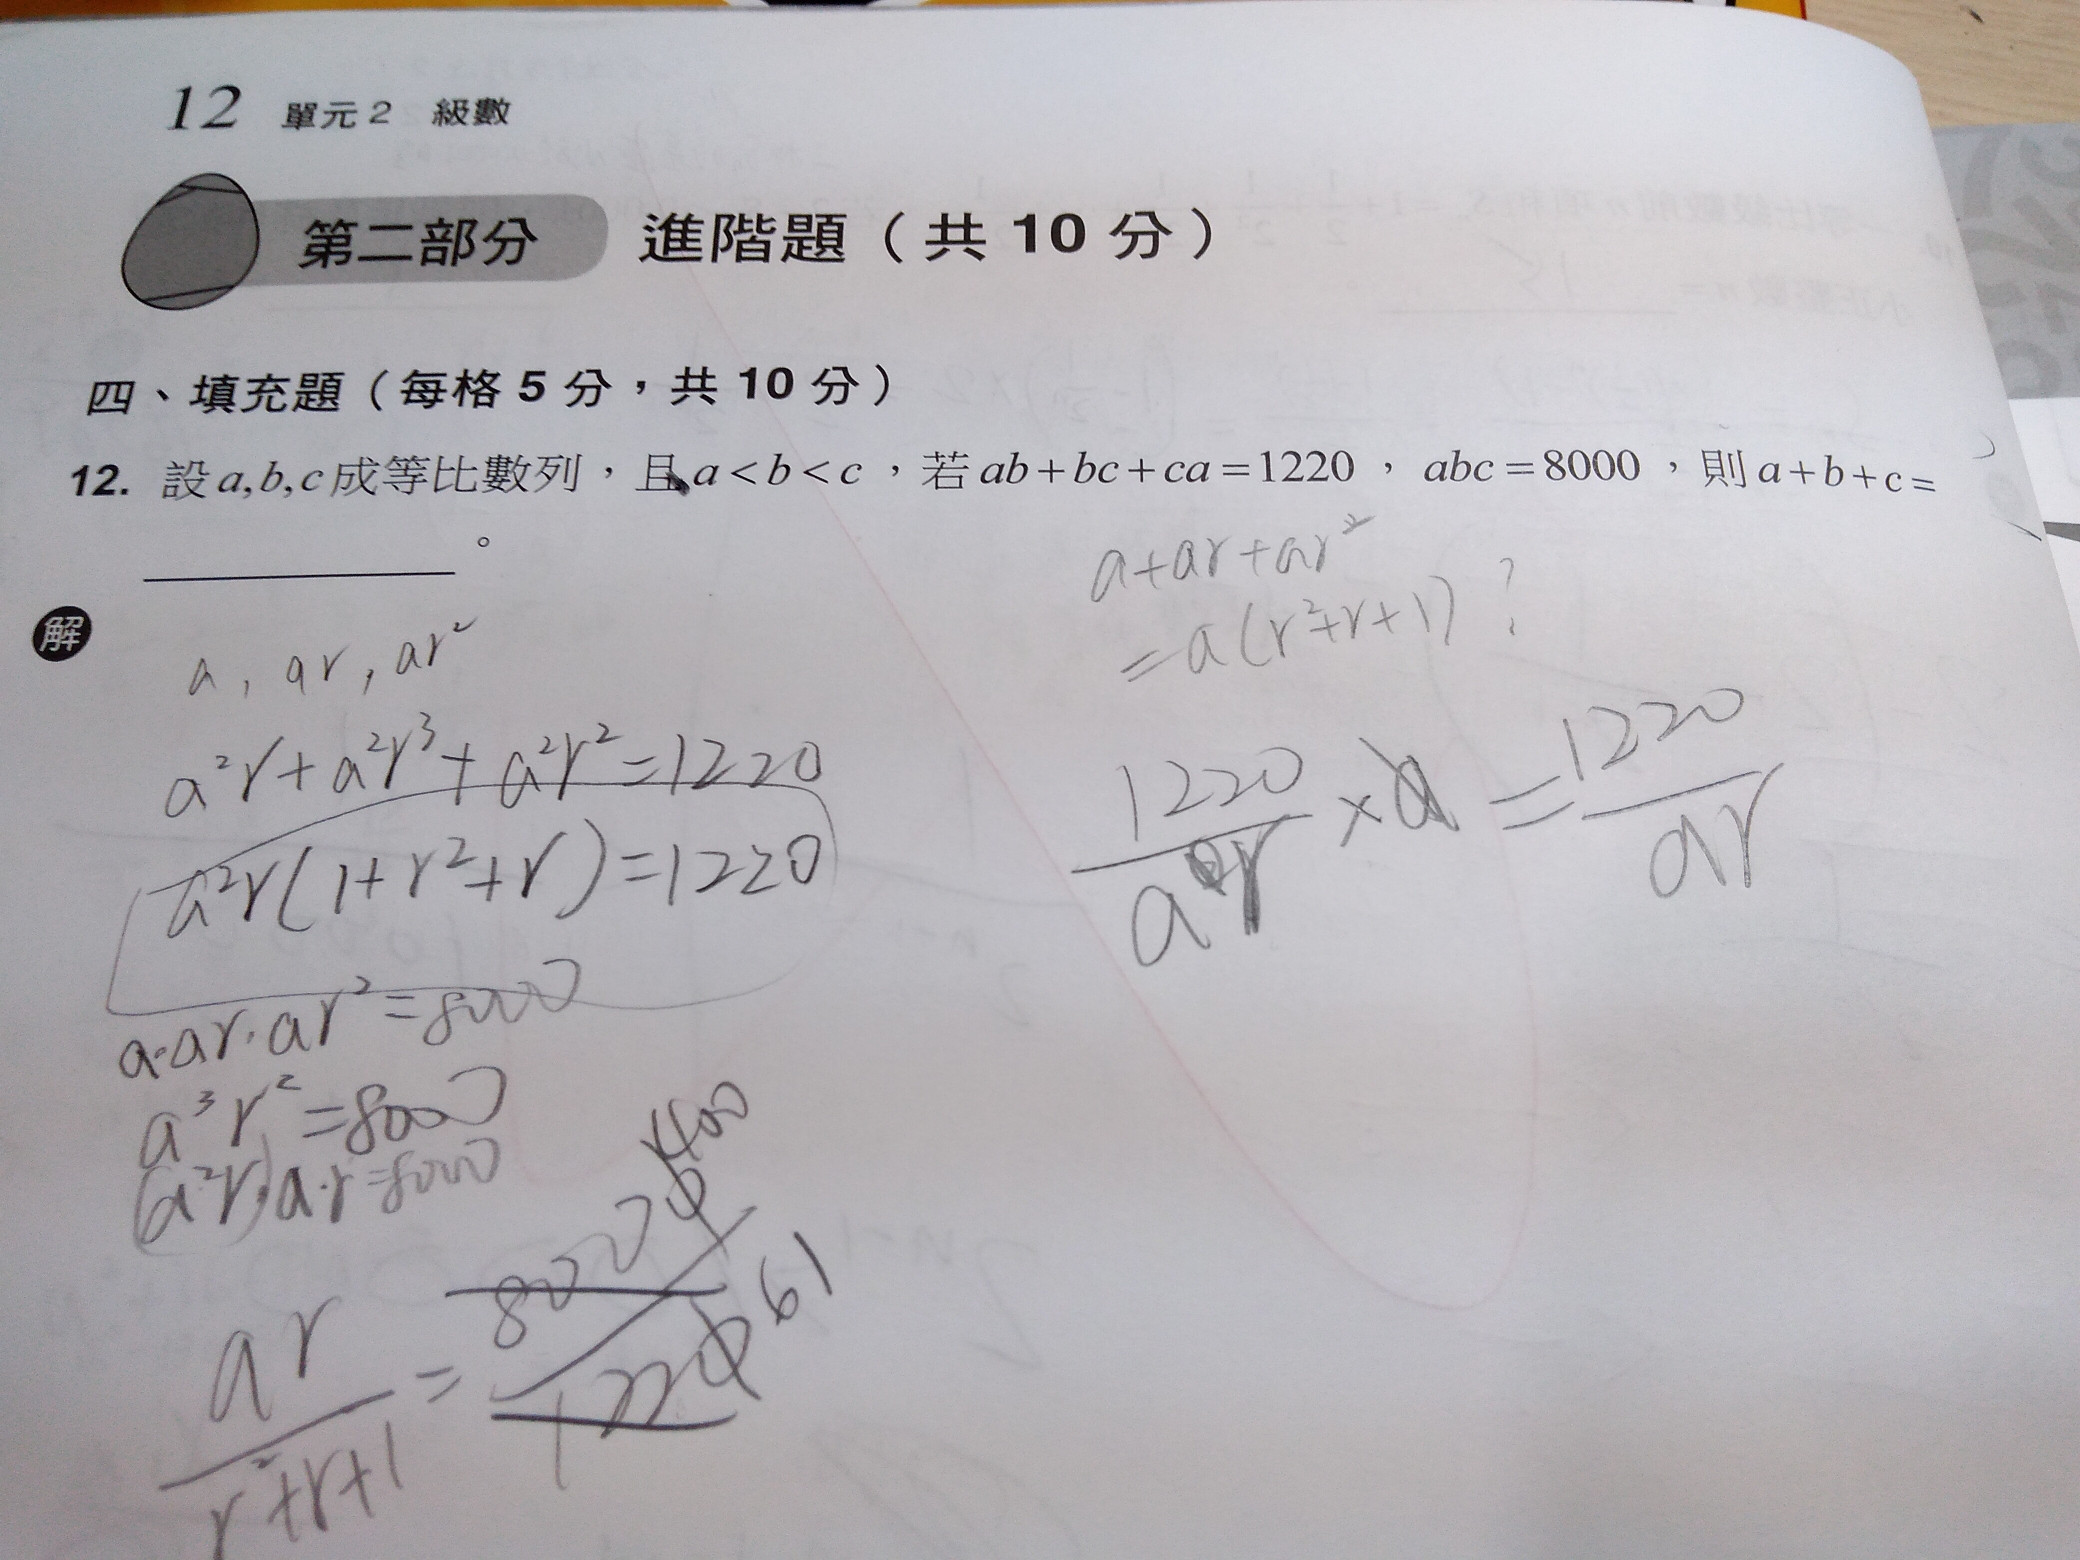 12 單元2 級數
第二部分 進階題（共 10 分）
四、填充題（每格 5 分，共 10 分）
12. 設a,b,c成等比數列，且a<b<c，若ab+bc+ca=1220，abc=8000，則a+b+c=
____________。
解
a, ar, ar²
a²r+a²r³+a²r²=1220
a²r(1+r²+r)=1220
a·ar·ar²=8000
a³r²=8000
(a²r)a·r=8000
ar/r²+r+1 = 8000/1220
400
61
a+ar+ar²
=a(r²+r+1)?
1220/a²r ×a = 1220/ar